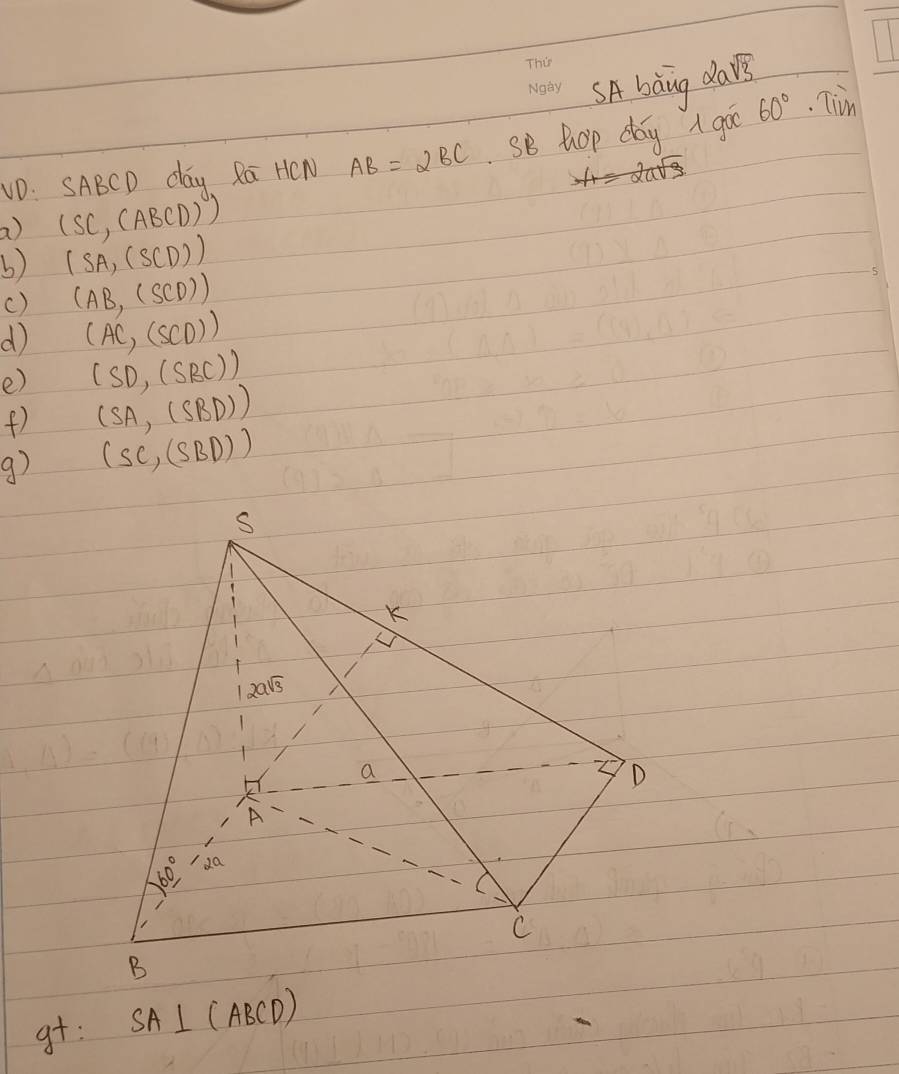 Thứ
Ngày
SA bằng 2a√3
VD: SABCD đáy là HCN AB = 2BC. SB hợp đáy 1 góc 60°. Tìm
a) (SC, (ABCD))
b) (SA, (SCD))
c) (AB, (SCD))
d) (AC, (SCD))
e) (SD, (SBC))
f) (SA, (SBD))
g) (SC, (SBD))
S
K
2a√3
a
D
A
60°
2a
C
B
gt: SA ⊥ (ABCD)